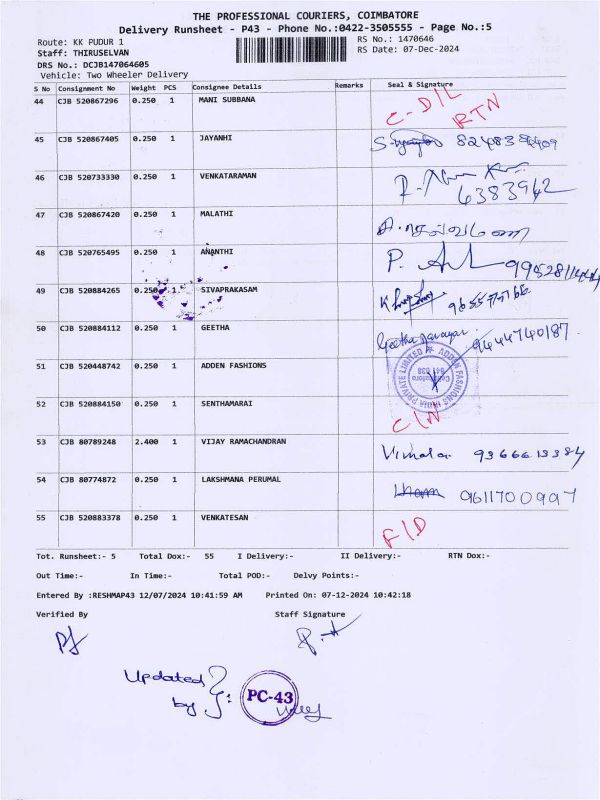 THE PROFESSIONAL COURIERS, COIMBATORE
Delivery Runsheet - P43 - Phone No.:0422-3505555 - Page No.:5
Route: KK PUDUR 1 RS No.: 1470646
Staff: THIRUSELVAN RS Date: 07-Dec-2024
DRS No.: DCJB147064605
Vehicle: Two Wheeler Delivery
S No Consignment No Weight PCS Consignee Details Remarks Seal & Signature
44 CJB 520867296 0.250 1 MANI SUBBANA C-D/L RTN
45 CJB 520867405 0.250 1 JAYANHI
46 CJB 520733330 0.250 1 VENKATARAMAN 6383942
47 CJB 520867420 0.250 1 MALATHI
48 CJB 520765495 0.250 1 ANANTHI P.
49 CJB 520884265 0.250 1 SIVAPRAKASAM
50 CJB 520884112 0.250 1 GEETHA Geetha 9444740187
51 CJB 520448742 0.250 1 ADDEN FASHIONS ADDEN FASHIONS INDIA PRIVATE LIMITED Coimbatore 641 038
52 CJB 520884150 0.250 1 SENTHAMARAI C/N
53 CJB 80789248 2.400 1 VIJAY RAMACHANDRAN Vimala 9366613384
54 CJB 80774872 0.250 1 LAKSHMANA PERUMAL 9611700997
55 CJB 520883378 0.250 1 VENKATESAN F/D
Tot. Runsheet:- 5 Total Dox:- 55 I Delivery:- II Delivery:- RTN Dox:-
Out Time:- In Time:- Total POD:- Delvy Points:-
Entered By :RESHMAP43 12/07/2024 10:41:59 AM Printed On: 07-12-2024 10:42:18
Verified By Staff Signature
Updated
by : PC-43